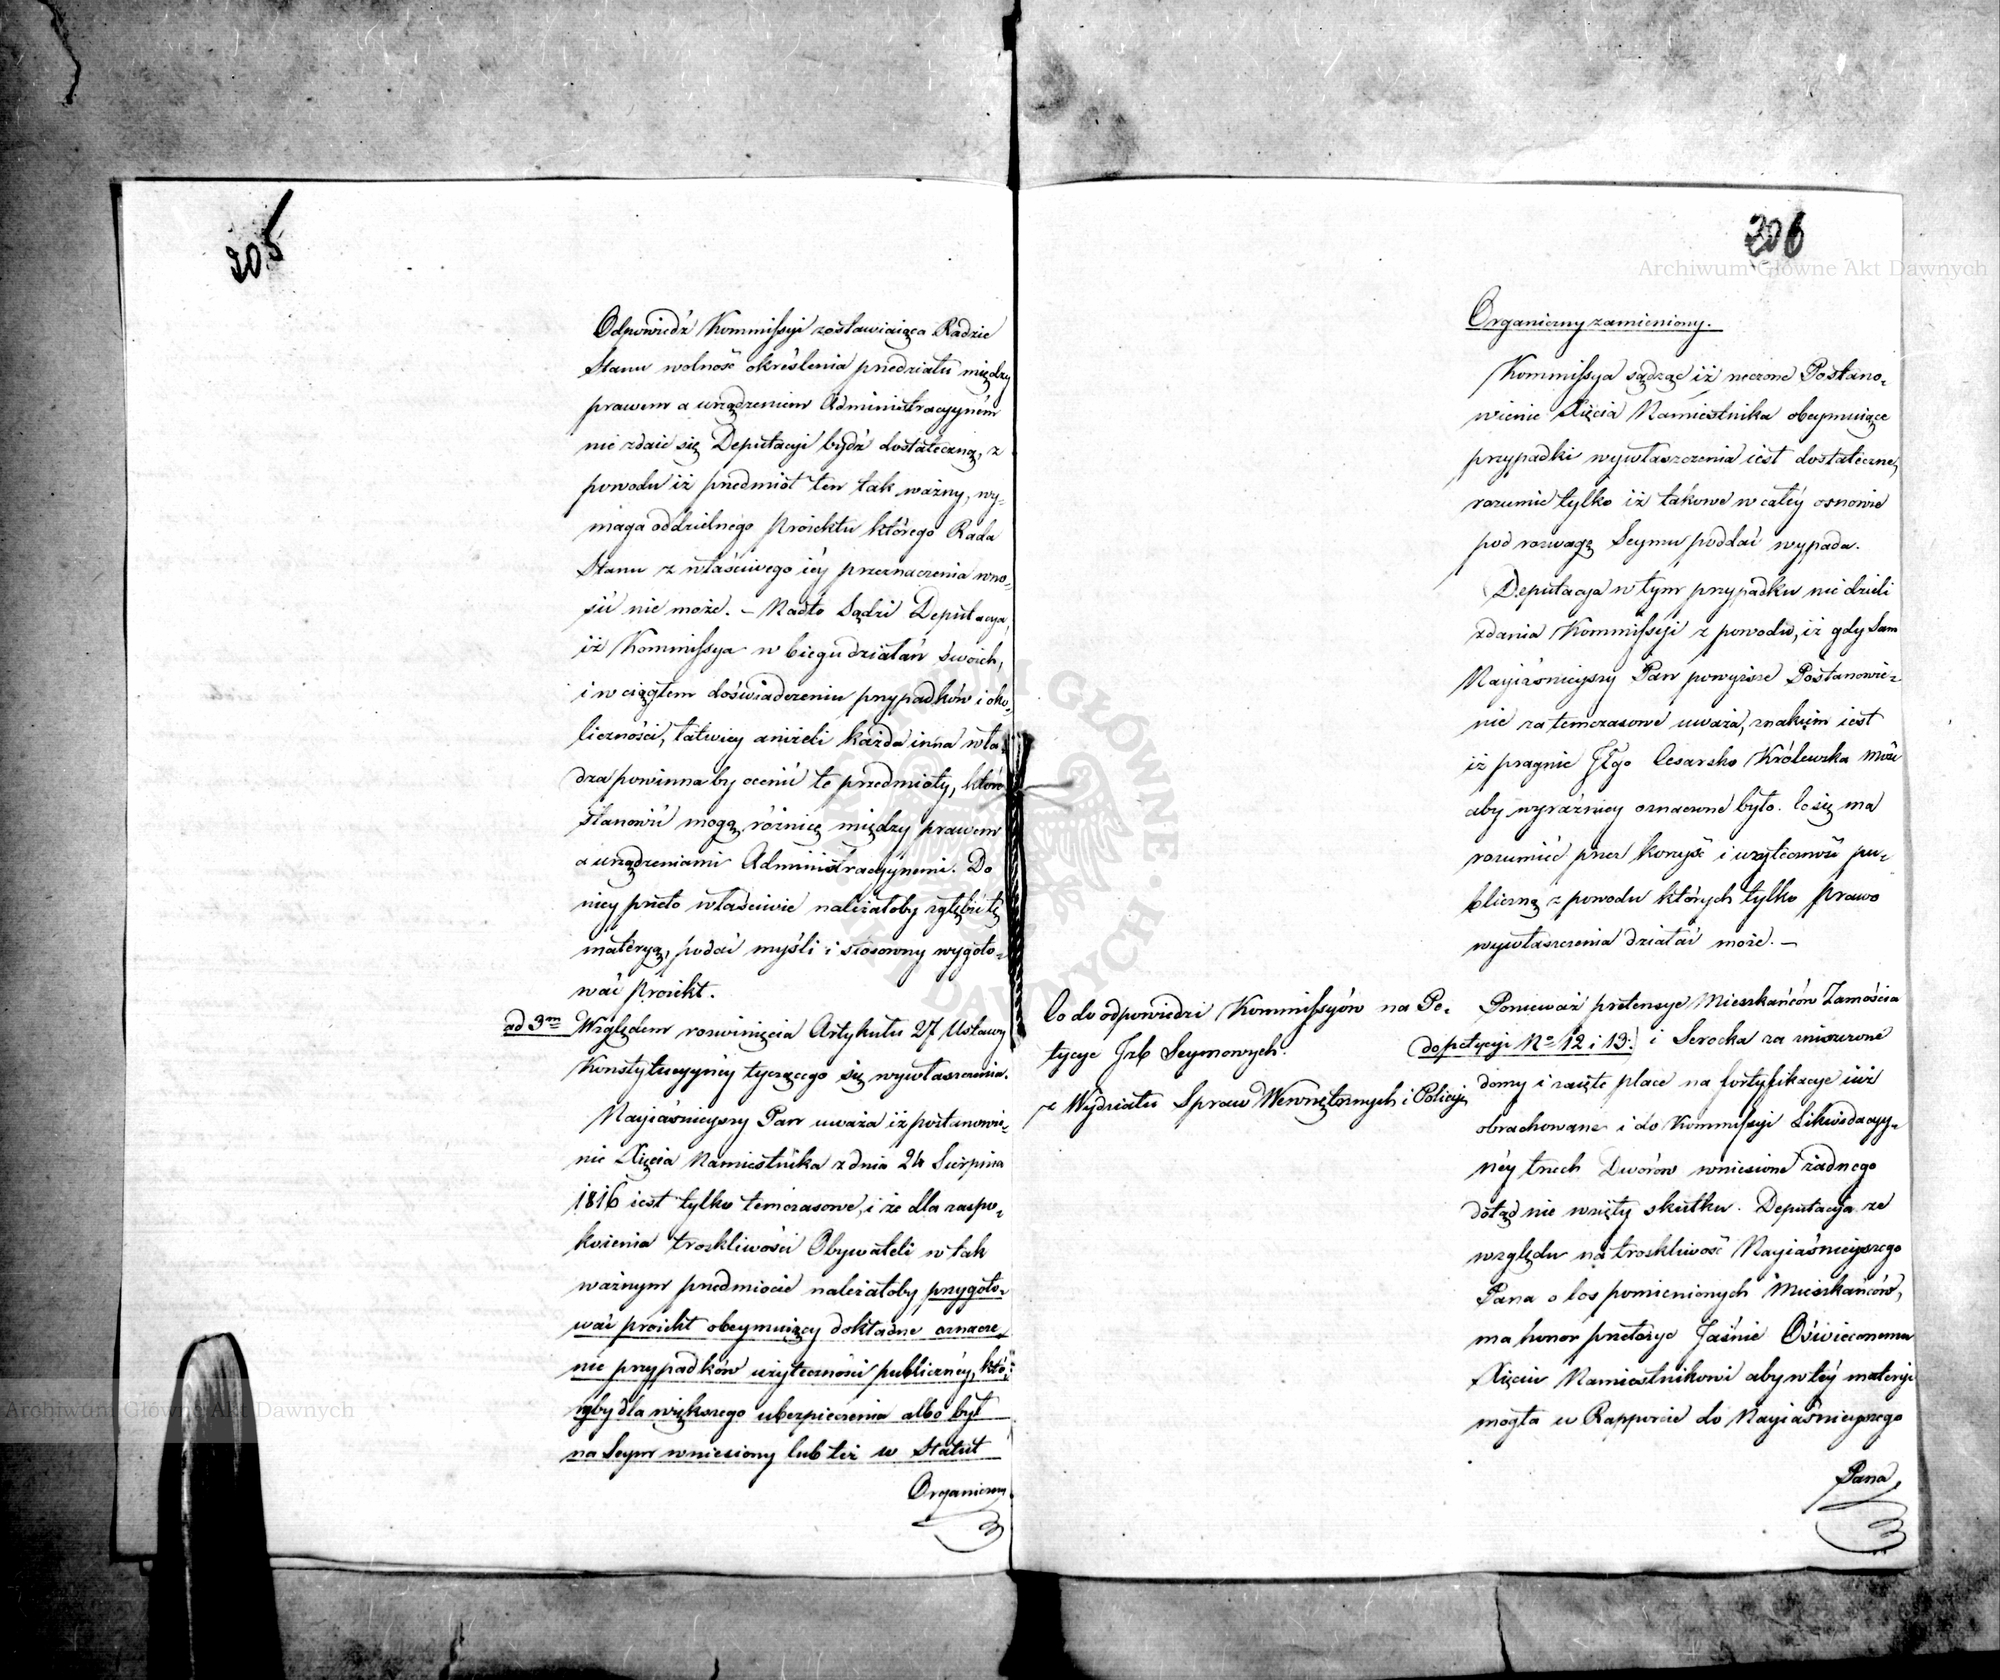 205
Odpowiedź Kommissyi zostawiaiąca Radzie
Stanu wolność określenia przedziału między
prawem a urządzeniem Administracyyném
nie zdaie się Deputacyi bydź dostateczną, z
powodu iż przedmiot ten tak ważny, wy-
maga oddzielnego Proiektu którego Rada
Stanu z właściwego iéy przeznaczenia wno-
sić nie może. – Nadto Sądzi Deputacya,
iż Kommissya w biegu działań swoich,
i w ciągłem doświadczeniu przypadków i oko-
liczności, łatwiey aniżeli każda inna wła-
dza powinna by ocenić te przedmioty, które
stanowić mogą różnicę między prawem
a urządzeniami Administracyynemi. Do
niey przeto właściwie należałoby zgłębić tę
materyą, podać myśli i stosowny wygoto-
wać proiekt.
ad 3m Względem rozwinięcia Artykułu 27 Ustawy
Konstytucyynéy tyczącego się wywłaszczenia.
Nayiaśnieyszy Pan uważa iż postanowie-
nie Xięcia Namiestnika z dnia 24 Sierpnia
1816 iest tylko temczasowe, i że dla zaspo-
koienia troskliwości Obywateli w tak
ważnym przedmiocie należałoby przygoto-
wać proiekt obeymuiący dokładne oznacze-
nie przypadków użyteczności publicznéy, któ-
ryby dla większego ubezpieczenia albo był
na Seym wniesiony lub też w Statut
Organiczny
206
Organiczny zamieniony.
Kommissya sądząc iż rzeczone Postano-
wienie Xięcia Namiestnika obeymuiące
przypadki wywłaszczenia iest dostateczne,
rozumie tylko iż takowe w całéy osnowie
pod rozwagę Seymu poddać wypada.
Deputacya w tym przypadku nie dzieli
zdania Kommissyi z powodu, iż gdy Sam
Nayiaśnieyszy Pan powyższe Postanowie-
nie za temczasowe uważa, znakiem iest
iż pragnie Jego Cesarsko Królewska Mość
aby wyraźniey oznaczone było. Co się ma
rozumieć przez korzyść i użyteczność pu-
bliczną z powodu których tylko prawo
wywłaszczenia działać może. –
Co do odpowiedzi Kommissyów na Pe-
tycye Izb Seymowych.
z Wydziału Spraw Wewnętrznych i Policyi
do petycyi No 12 i 13:
Ponieważ pretensye Mieszkańców Zamościa
i Serocka za zniszczone
domy i zaięte place na fortyfikacye iuż
obrachowane i do Kommissyi Likwidacyy-
néy trzech Dworów wniesione żadnego
dotąd nie wzięły skutku. Deputacya ze
względu na troskliwość Nayiaśnieyszego
Pana o los pomienionych Mieszkańców,
ma honor przełożyć Jaśnie Oświeconemu
Xięciu Namiestnikowi aby w téy materyi
mogła w Rapporcie do Nayiaśnieyszego
Pana
Archiwum Główne Akt Dawnych
Archiwum Główne Akt Dawnych